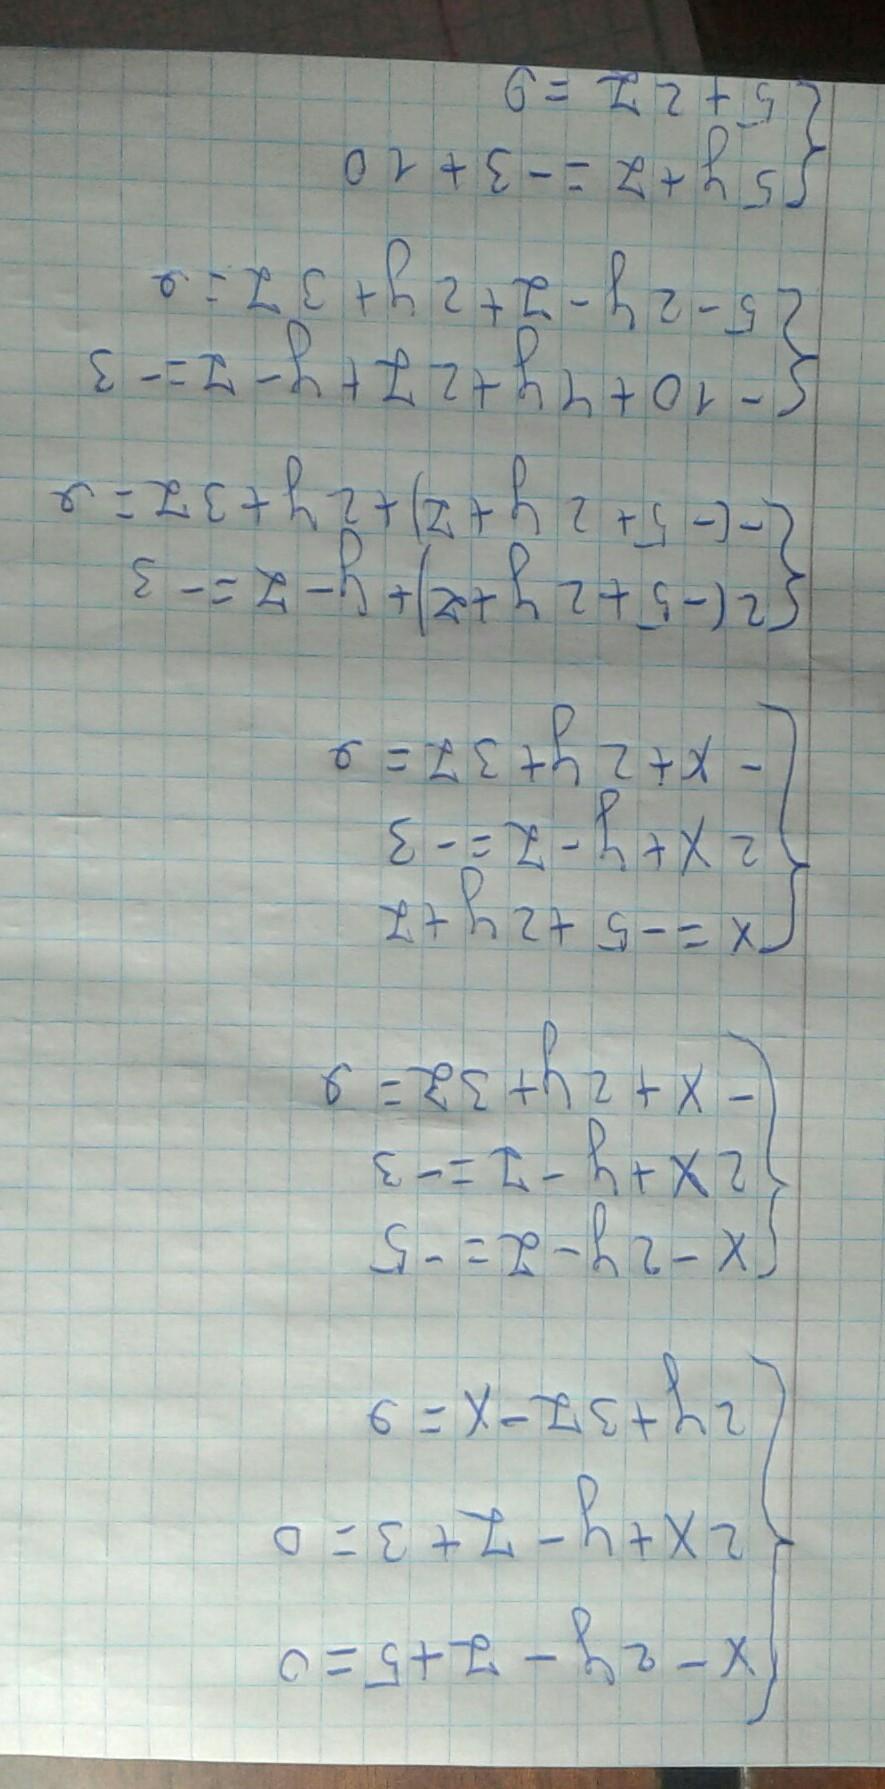 x - 2y - z + 5 = 0
2x + y - z + 3 = 0
2y + 3z - x = 9
x - 2y - z = -5
2x + y - z = -3
-x + 2y + 3z = 9
x = -5 + 2y + z
2x + y - z = -3
-x + 2y + 3z = 9
2(-5 + 2y + z) + y - z = -3
-(-5 + 2y + z) + 2y + 3z = 9
-10 + 4y + 2z + y - z = -3
5 - 2y - z + 2y + 3z = 9
5y + z = -3 + 10
5 + 2z = 9